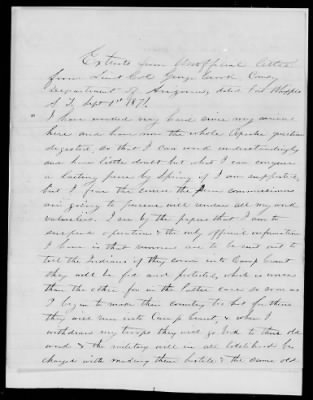 Extracts from Unofficial letter
from Lieut Col George Crook Comdg
Department of Arizona, dated Fort Whipple
A. T. Sept 1st 1871.
"I have worked very hard since my arrival
here and have now the whole Apache question
digested, so that I can work understandingly
and have little doubt but what I can conquer
a lasting peace by Spring if I am supported,
but I fear the course the peace commissioners
are going to pursue will render all my work
valueless. I see by the papers that I am to
suspend operations & the only official information
I have is that runners are to be sent out to
tell the Indians if they come into Camp Grant
they will be fed and protected, which is worse
than the other for in the latter case so soon as
I begin to make their country too hot for them
they will run into Camp Grant, & when I
withdraw my troops they will go back to their old
work & the military will in all likelihood be
charged with making them hostile & the same old